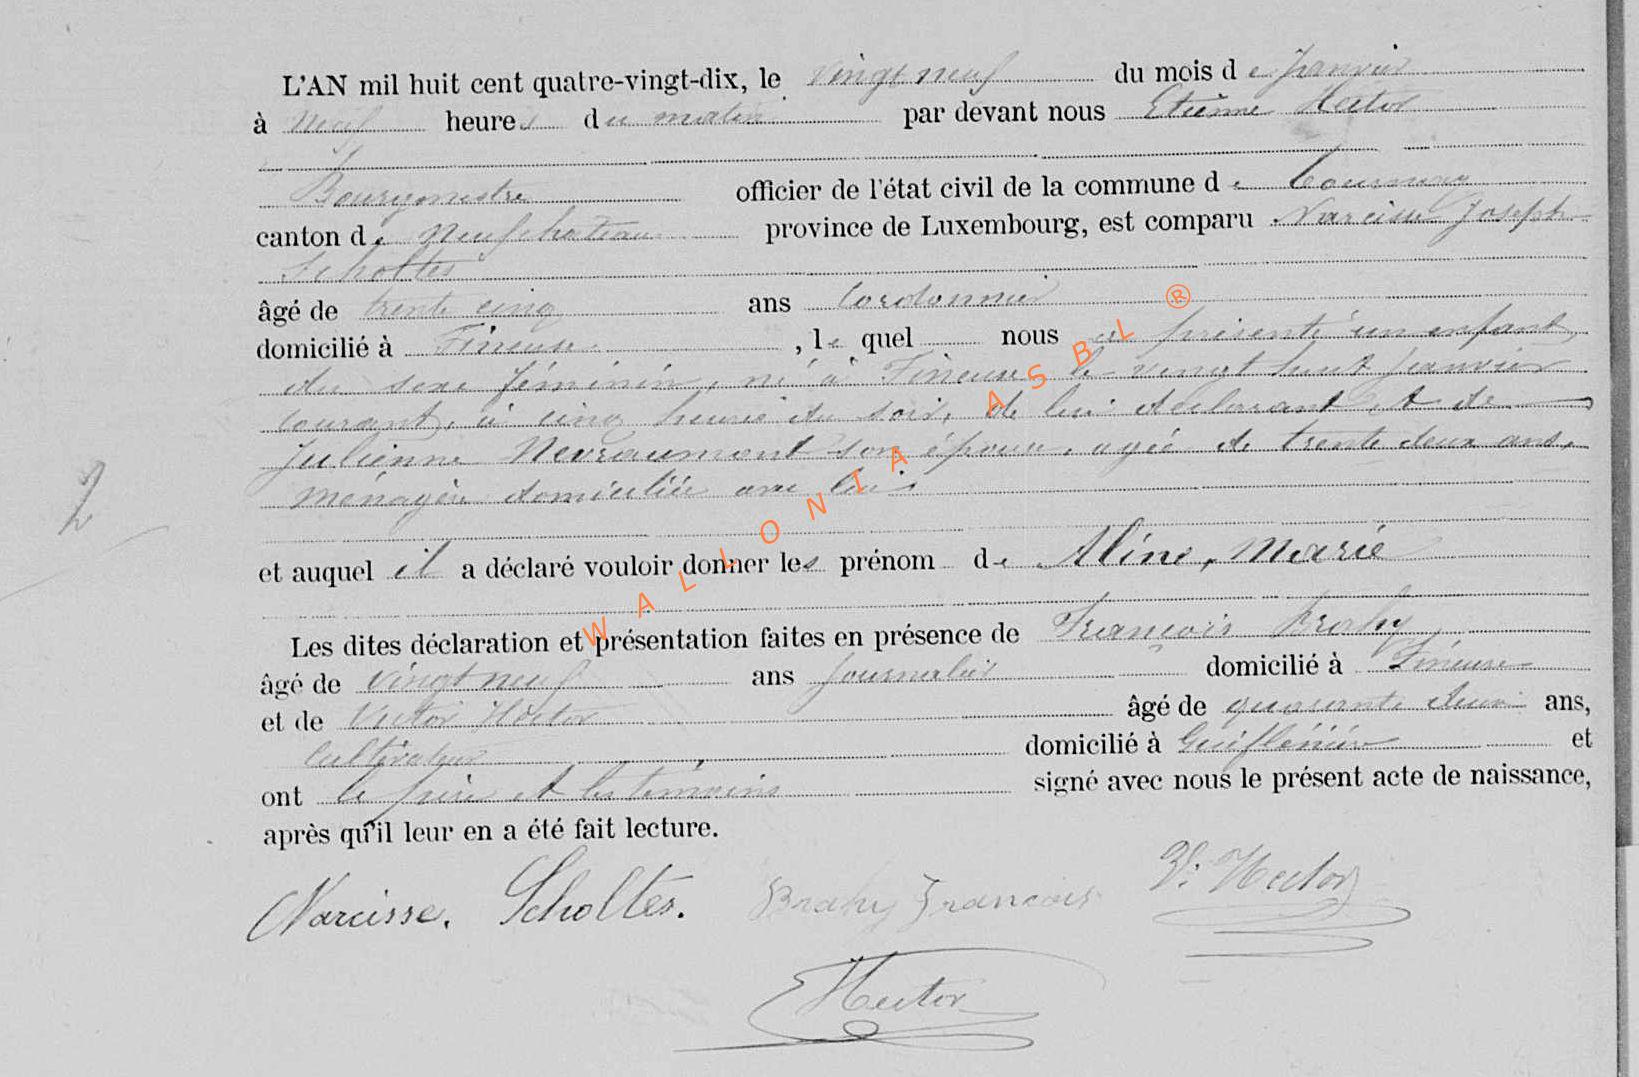 L'AN mil huit cent quatre-vingt-dix, le vingt neuf du mois de Janvier
à neuf heures du matin par devant nous Etienne Hector
Bourgmestre officier de l'état civil de la commune de Tournay
canton de Neufchateau province de Luxembourg, est comparu Narcisse Joseph
Scholtès
âgé de trente cinq ans Cordonnier
domicilié à Fineuse, le quel nous a présenté un enfant
du sexe féminin, né à Fineuse le vingt huit Janvier
courant, à cinq heures du soir, de lui déclarant et de
Julienne Nevraumont son épouse, agée de trente deux ans,
Ménagère domiciliée avec lui
2
et auquel il a déclaré vouloir donner les prénom de Aline, Marie
Les dites déclaration et présentation faites en présence de François Brahy
âgé de vingt neuf ans Journalier domicilié à Fineuse
et de Victor Hector âgé de quarante deux ans,
Cultivateur domicilié à et
ont le père et les témoins signé avec nous le présent acte de naissance,
après qu'il leur en a été fait lecture.
Narcisse. Scholtès. Brahy Francois V. Hector
E Hector
WALLONIA ASBL ®